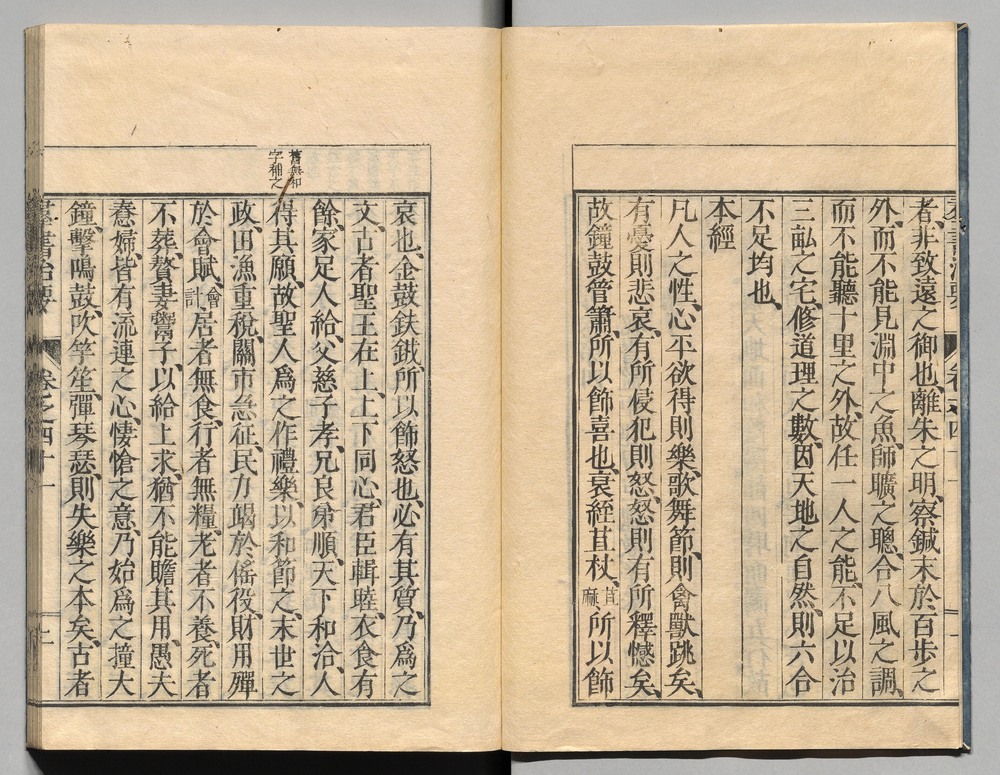 者、非致遠之御也、離朱之明、察鍼末於百步之
外、而不能見淵中之魚、師曠之聰、合八風之調、
而不能聽十里之外、故任一人之能、不足以治
三畝之宅、修道理之數、因天地之自然、則六合
不足均也、
本經
凡人之性、心平欲得則樂、歌舞節、則禽獸跳矣、
有憂則悲哀、有所侵犯則怒、怒則有所釋憾矣、
故鐘鼓管簫、所以飾喜也、衰絰苴杖、苴麻、所以飾
哀也、金鼓鈇鉞、所以飾怒也、必有其質、乃爲之
文、古者聖王在上、上下同心、君臣輯睦、衣食有
餘、家足人給、父慈子孝、兄良弟順、天下和洽、人
舊無和
字補之
得其願、故聖人爲之作禮樂、以和節之、末世之
政、田漁重稅、關市急征、民力竭於徭役、財用殫
於會賦、會計、居者無食、行者無糧、老者不養、死者
不葬、贅妻鬻子、以給上求、猶不能贍其用、愚夫
惷婦、皆有流連之心、悽愴之意、乃始爲之撞大
鐘、擊鳴鼓、吹竽笙、彈琴瑟、則失樂之本矣、古者
羣書治要 卷之四十一